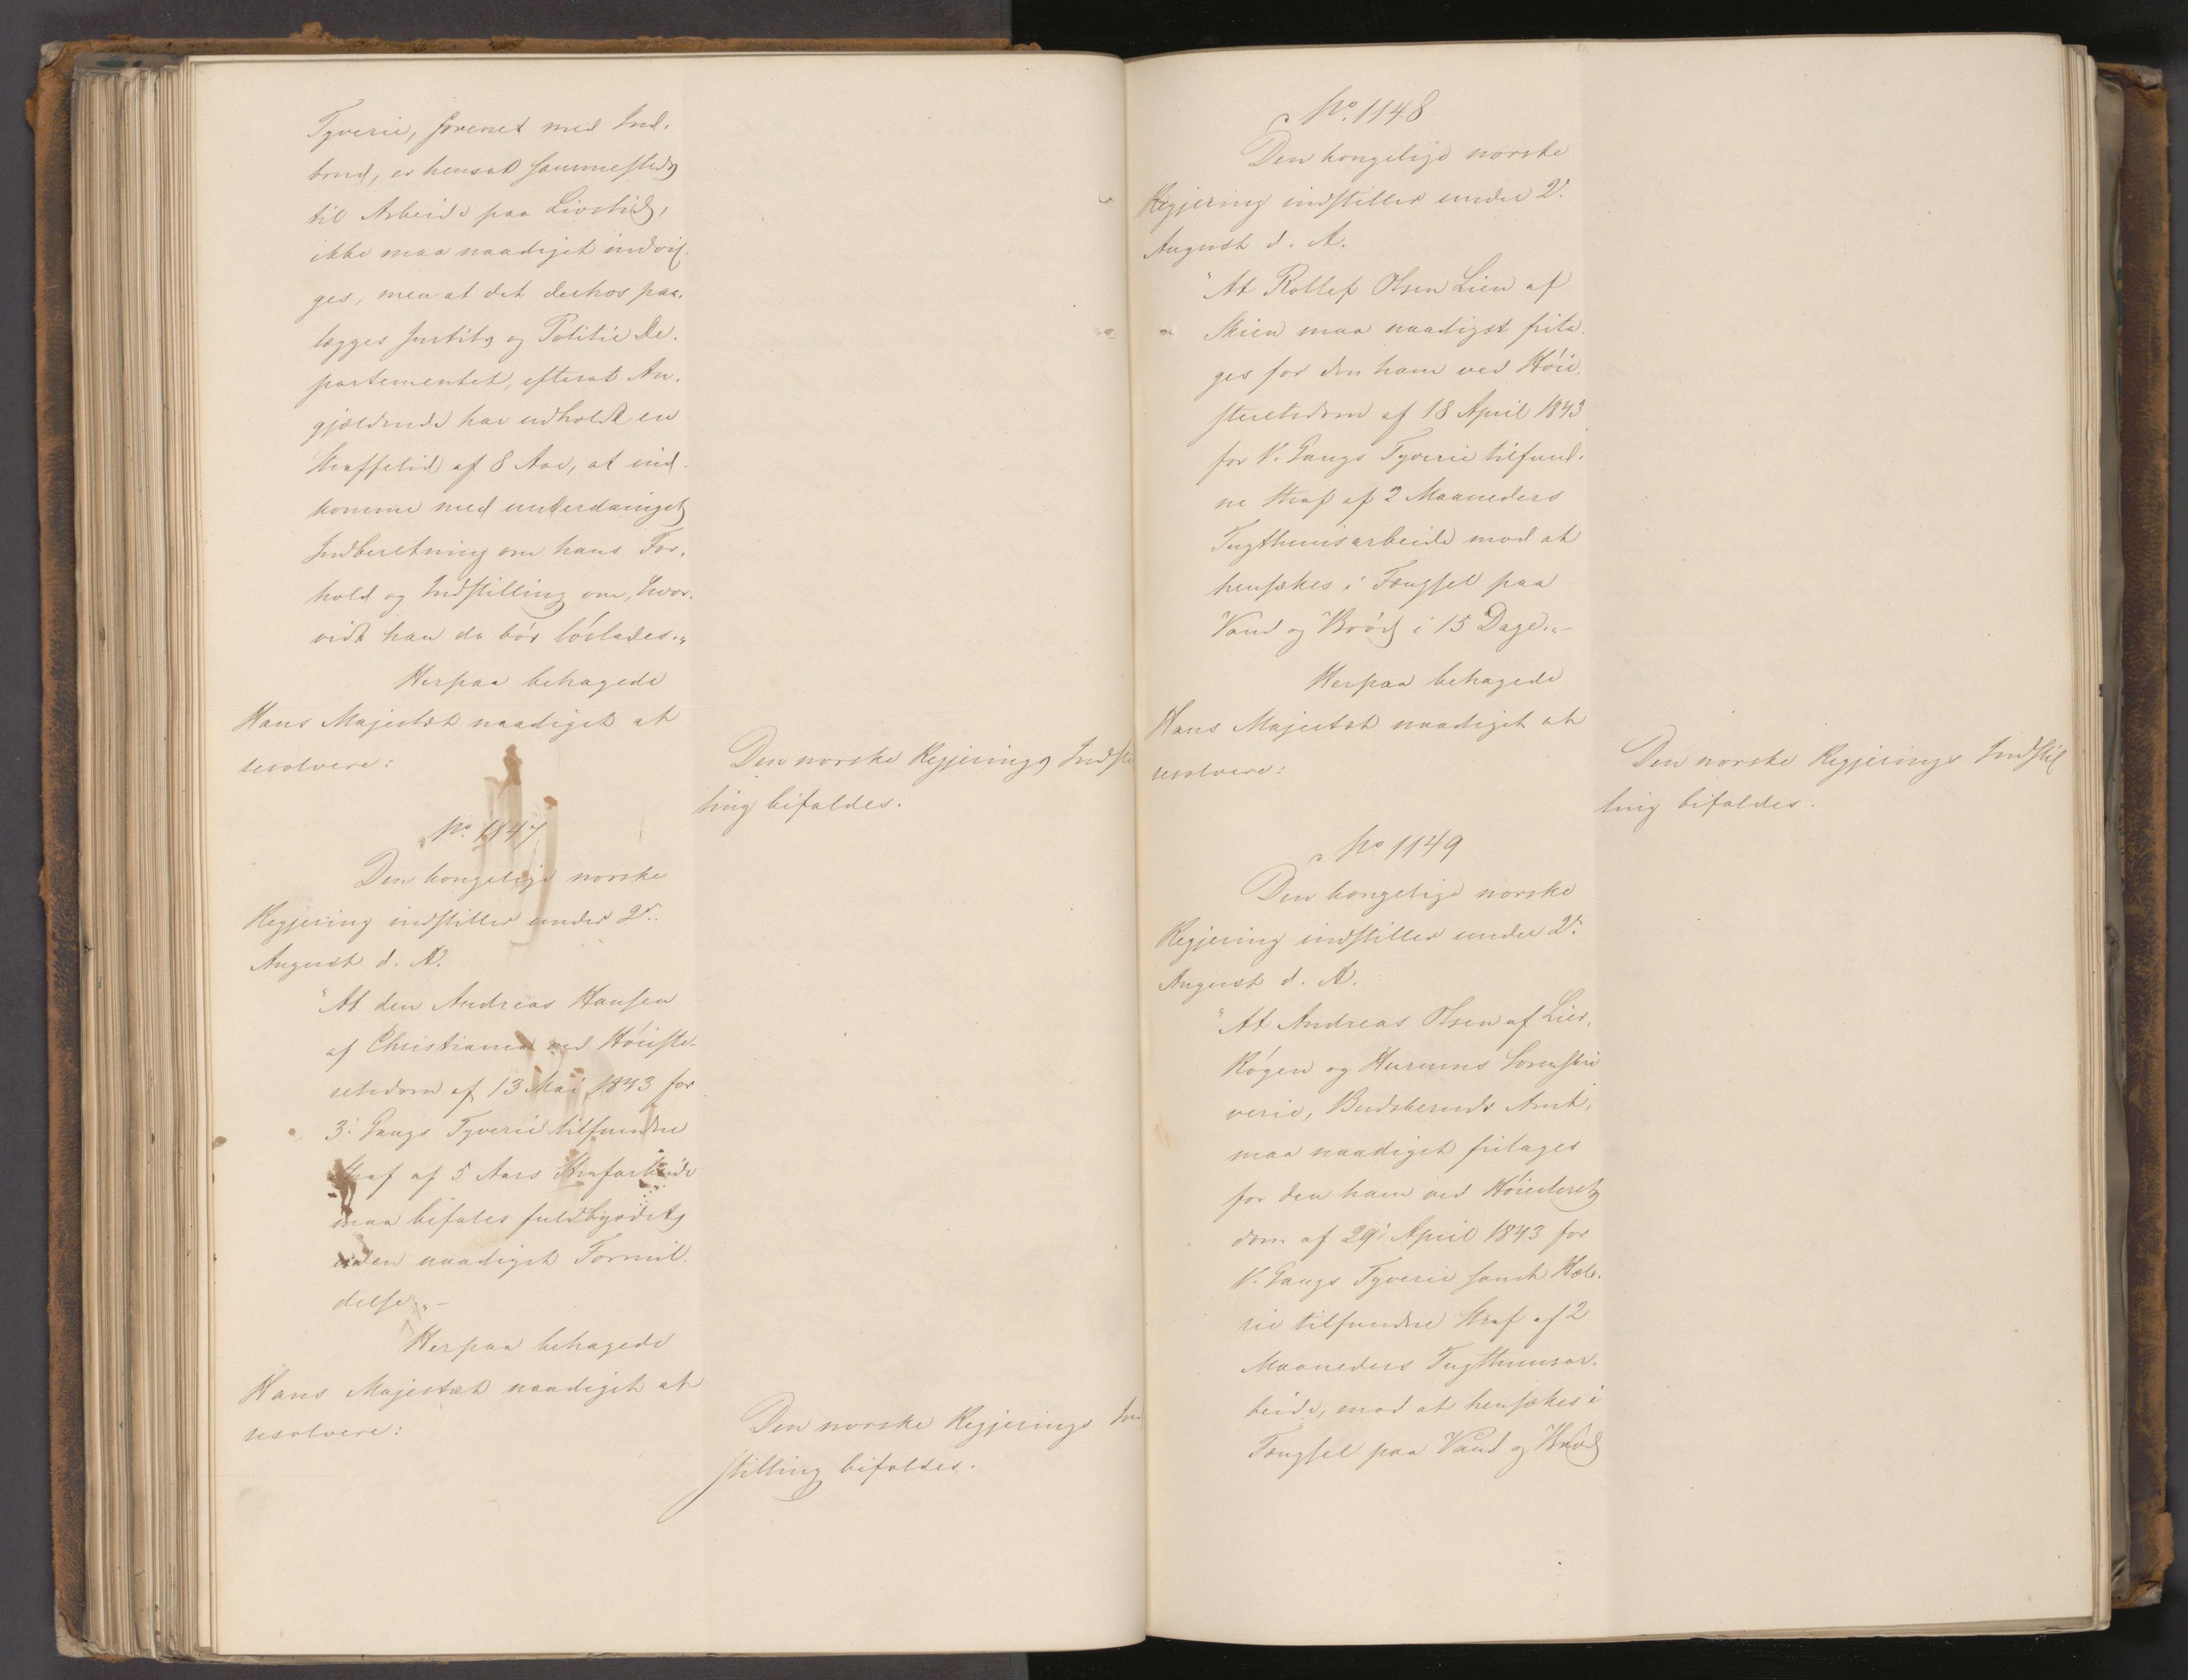 Tyverie, forenet med Ind-
brud, er hensat sammesteds
til Arbeide paa Livstid,
ikke maa naadigst indvil-
ges, men at det derhos paa-
lægges Justits og Politie De-
partementet, efterat An-
gjældende har udholdt en
Straffetid af 8 Aar, at ind-
komme med underdanigst
Indberetning om hans For-
hold og Indstilling om, hvor-
vidt han da bör löslades."
Herpaa behagede
Hans Majestæt naadigst at
resolvere:
Den norske Regjerings Indstil
ling bifaldes.
No. 1147
Den kongelige norske
Regjering indstiller under 2.
August d. A.
"At den Andreas Hansen
af Christiania ved Höieste-
retsdom af 13 Mai 1843 for
3. Gangs Tyverie tilfundne
Straf af 5 Aars Strafarbeide
maa befales fuldbyrdet
uden naadigst Formil-
delse."-
Herpaa behagede
Hans Majestæt naadigst at
resolvere:
Den norske Regjerings Ind
stilling bifaldes.
No. 1148
Den kongelige norske
Regjering indstiller under 2.
August d. A.
"At Rollef Olsen Lien af
Skien maa naadigst frita-
ges for den ham ved Höie-
steretsdom af 18 April 1843
for 1. Gangs Tyverie tilfund-
ne Straf af 2 Maaneders
Tugthuusarbeide mod at
hensættes i Fængsel paa
Vand og Bröd i 15 Dage."-
Herpaa behagede
Hans Majestæt naadigst at
resolvere:
Den norske Regjerings Indstil
ling bifaldes.
No 1149
Den kongelige norske
Regjering indstiller under 2.
August d. A.
"At Andreas Olsen af Lier,
Rögen og Hurums Sorenskri
verie, Budskeruds Amt,
maa naadigst fritages
for den ham ved Höiesterets
dom af 29. April 1843 for
1. Gangs Tyverie samt Hæle-
rie tilfundne Straf af 2
Maaneders Tugthuusar-
beide, mod at hensættes i
Fængsel paa Vand og Bröd